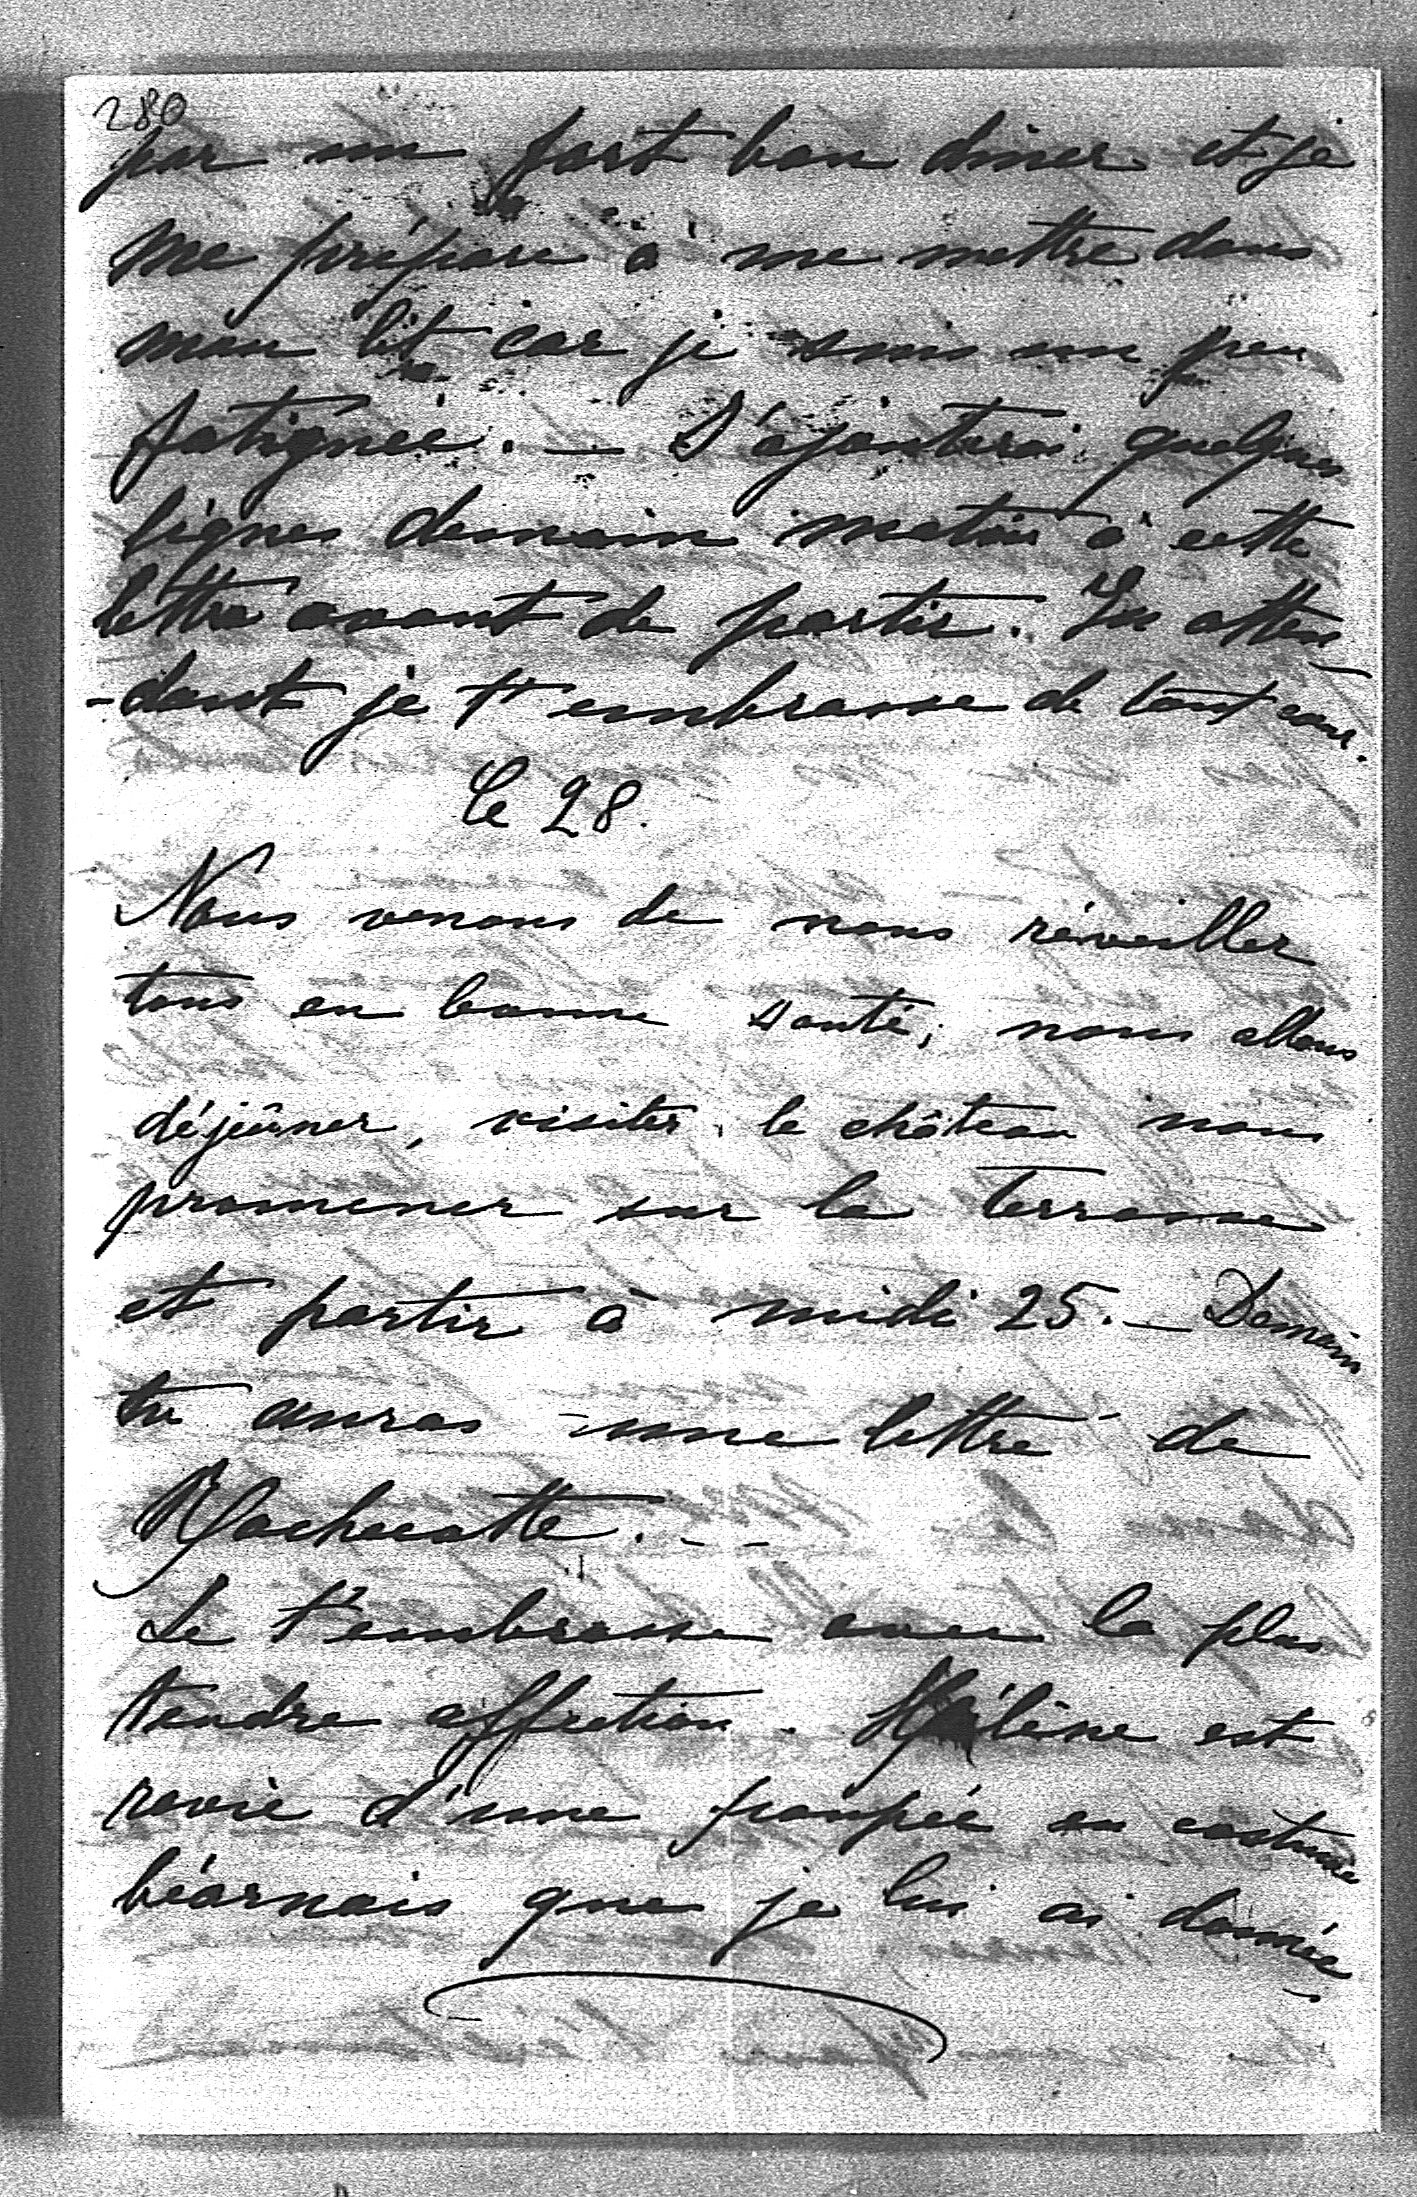 280
par un fort bon diner et je
me prépare à me mettre dans
mon lit car je suis un peu
fatiguée. — J'ajouterai quelques
lignes demain matin à cette
lettre avant de partir. En atten
-dant je t'embrasse de tout cœur.
Le 28.
Nous venons de nous réveiller
tous en bonne santé; nous allons
déjeûner, visiter le château nous
promener sur la terrasse
et partir à midi 25. — Demain
tu auras une lettre de
Rochecotte. --
Je t'embrasse avec la plus
tendre affection. Hélène est
ravie d'une poupée en costume
béarnais que je lui ai donnée